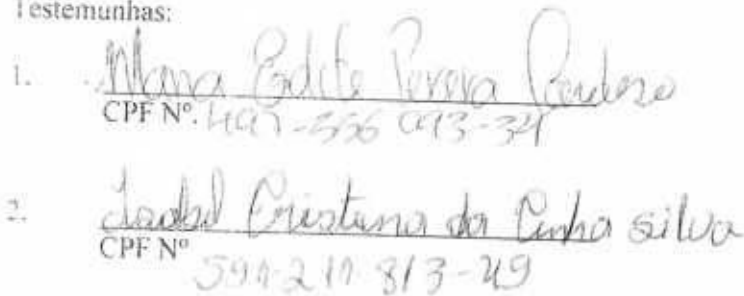 Testemunhas:
1. Maria Edite Pereira Cardoso
CPF Nº. 497-556 093-34
2. Isabel Cristina da Cunha Silva
CPF Nº 591-211-813-49